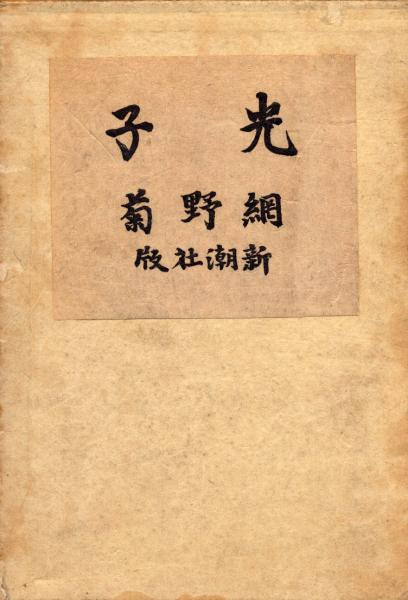 光子
網野菊
新潮社版